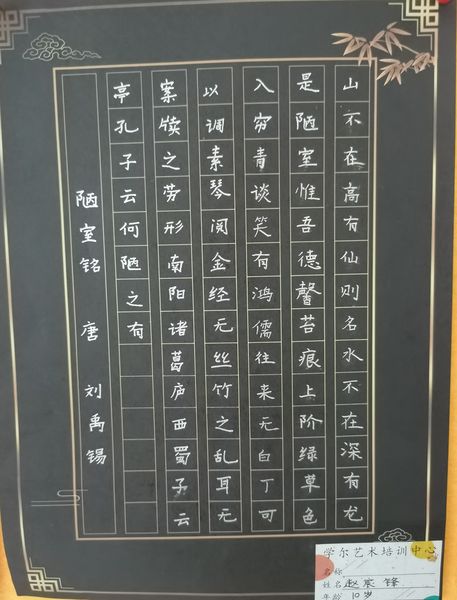 山不在高有仙则名水不在深有龙
是陋室惟吾德馨苔痕上阶绿草色
入穷青谈笑有鸿儒往来无白丁可
以调素琴阅金经无丝竹之乱耳无
案牍之劳形南阳诸葛庐西蜀子云
亭孔子云何陋之有
陋室铭 唐 刘禹锡
学尔艺术培训中心
名称
姓名 赵 锋
年龄 10岁